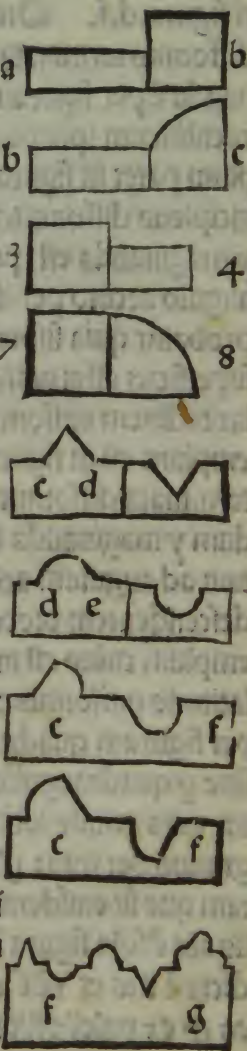 a b
b c
3 4
7 8
c d
d e
c f
c f
f g